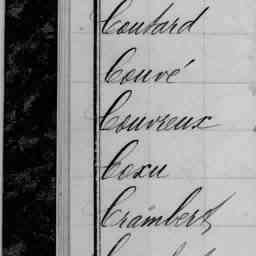 Coutard
Couvé
Couvreux
Coxu
Crambert